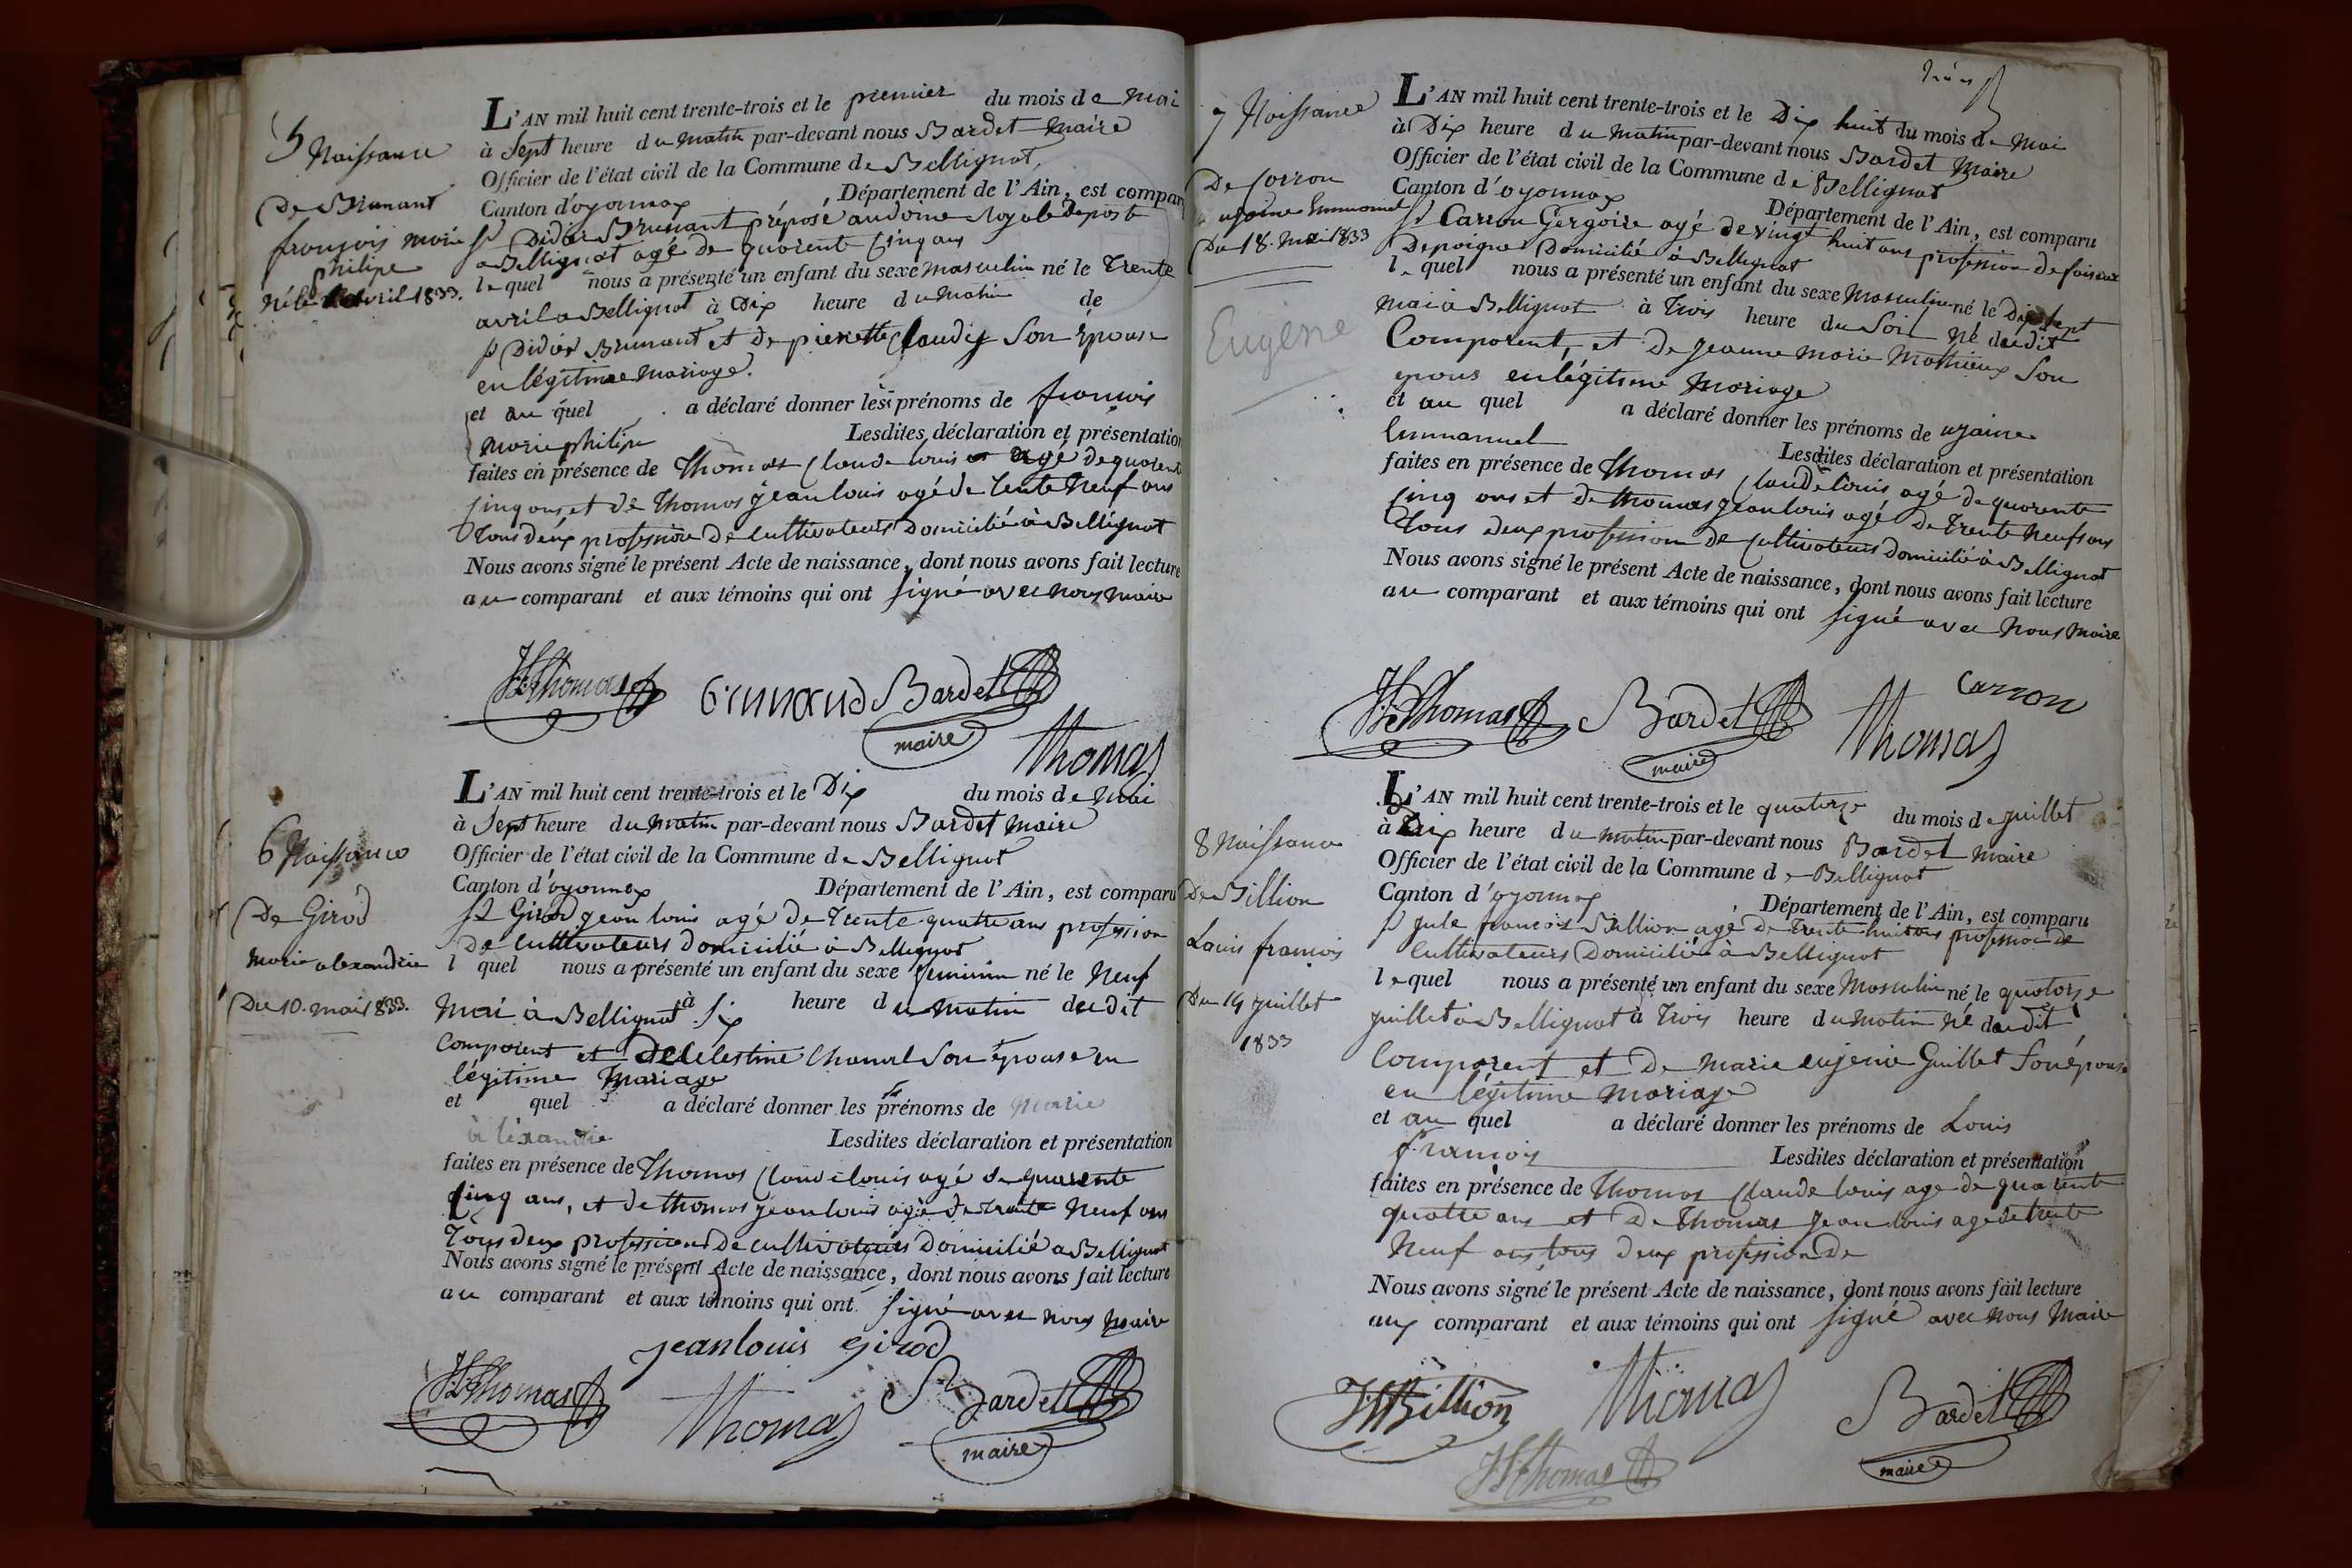 5 Naissance
De Brunant
françois marie
philipe
né le avril 1833.
L'AN mil huit cent trente-trois et le premier du mois de mai
à Sept heure du matin par-devant nous Bardet maire
Officier de l'état civil de la Commune de Bellignat
Canton d'oyonnax Département de l'Ain, est comparu
Sr Didier Brunant préposé au doine royale de poste
a Bellignat agé de quarente cinq ans
lequel nous a présenté un enfant du sexe masculin né le trente
avril a Bellignat à Dix heure du matin de
Sr Didier Brunant et de pierrette Claudy Son épouse
en légitime mariage.
et au quel a déclaré donner les prénoms de françois
marie philipe Lesdites déclaration et présentation
faites en présence de Thomas Claude louis agé de quarente
cinq ans et de Thomas jean louis agé de trente neuf ans
tous deux profession de cultivateurs Domicilié à Bellignat
Nous avons signé le présent Acte de naissance, dont nous avons fait lecture
au comparant et aux témoins qui ont signé avec nous maire
JL Thomas Bardet
maire
Thomas
6 Naissance
De Girod
marie alexandrie
Du 10. mai 1833.
L'AN mil huit cent trente-trois et le Dix du mois de mai
à Sept heure du matin par-devant nous Bardet maire
Officier de l'état civil de la Commune de Bellignat
Canton d'oyonnax Département de l'Ain, est comparu
Sr Girod jean louis agé de trente quatre ans profession
De cultivateurs domicilié à Bellignat
l quel nous a présenté un enfant du sexe feminin né le neuf
mai à Bellignat à six heure du matin du dit
comparent et de Celestine Chanal son épouse en
légitime mariage
et quel a déclaré donner les prénoms de Marie
aléxandrie Lesdites déclaration et présentation
faites en présence de Thomas Claude louis agé de quarente
cinq ans, et de thomas jean louis agé de trente neuf ans
tous deux profession de cultivateurs domicilié a Bellignat
Nous avons signé le présent Acte de naissance, dont nous avons fait lecture
au comparant et aux témoins qui ont signé avec nous maire
jean louis girod
JL Thomas Thomas Bardet
maire
7 Naissance
De Carron
ugaine Emmanuel
Du 18. mai 1833
Eugène
L'AN mil huit cent trente-trois et le Dix huit du mois de mai
à Dix heure du matin par-devant nous Bardet maire
Officier de l'état civil de la Commune de Bellignat
Canton d'oyonnax Département de l'Ain, est comparu
Sr Carron Gergoire agé de vingt huit ans profession de faiseur
De peigne Domicilié à Bellignat
lequel nous a présenté un enfant du sexe masculin né le Dix sept
mai à Bellignat à trois heure du Soir né du dit
Comparent, et de jeanne marie Mathieux son
epous en légitime mariage
et au quel a déclaré donner les prénoms de ugaine
Emmanuel Lesdites déclaration et présentation
faites en présence de Thomas Claude louis agé de quarente
cinq ans et de thomas jean louis agé de trente neuf ans
tous deux profession de cultivateurs domicilié à Bellignat
Nous avons signé le présent Acte de naissance, dont nous avons fait lecture
au comparant et aux témoins qui ont signé avec nous maire
JL Thomas Bardet Carron
maire Thomas
8 Naissance
De Billion
Louis françois
Du 14 juillet
1833
L'AN mil huit cent trente-trois et le quatorze du mois de juillet
à Dix heure du matin par-devant nous Bardet maire
Officier de l'état civil de la Commune de Bellignat
Canton d'oyonnax Département de l'Ain, est comparu
Sr jule françois Billion agé de trente huit ans profession de
cultivateurs Domicilié à Bellignat
lequel nous a présenté un enfant du sexe Masculin né le quatorze
juillet à Bellignat à trois heure du matin né du dit
Comparent et de marie eujenie Guillet son épouse
en légitime mariage
et au quel a déclaré donner les prénoms de Louis
françois Lesdites déclaration et présentation
faites en présence de Thomas Claude louis age de quarente
quatre ans et de Thomas jean louis age de trente
neuf ans tous deux profession de
Nous avons signé le présent Acte de naissance, dont nous avons fait lecture
aux comparant et aux témoins qui ont signé avec nous Maire
Billion Thomas Bardet
JL Thomas maire